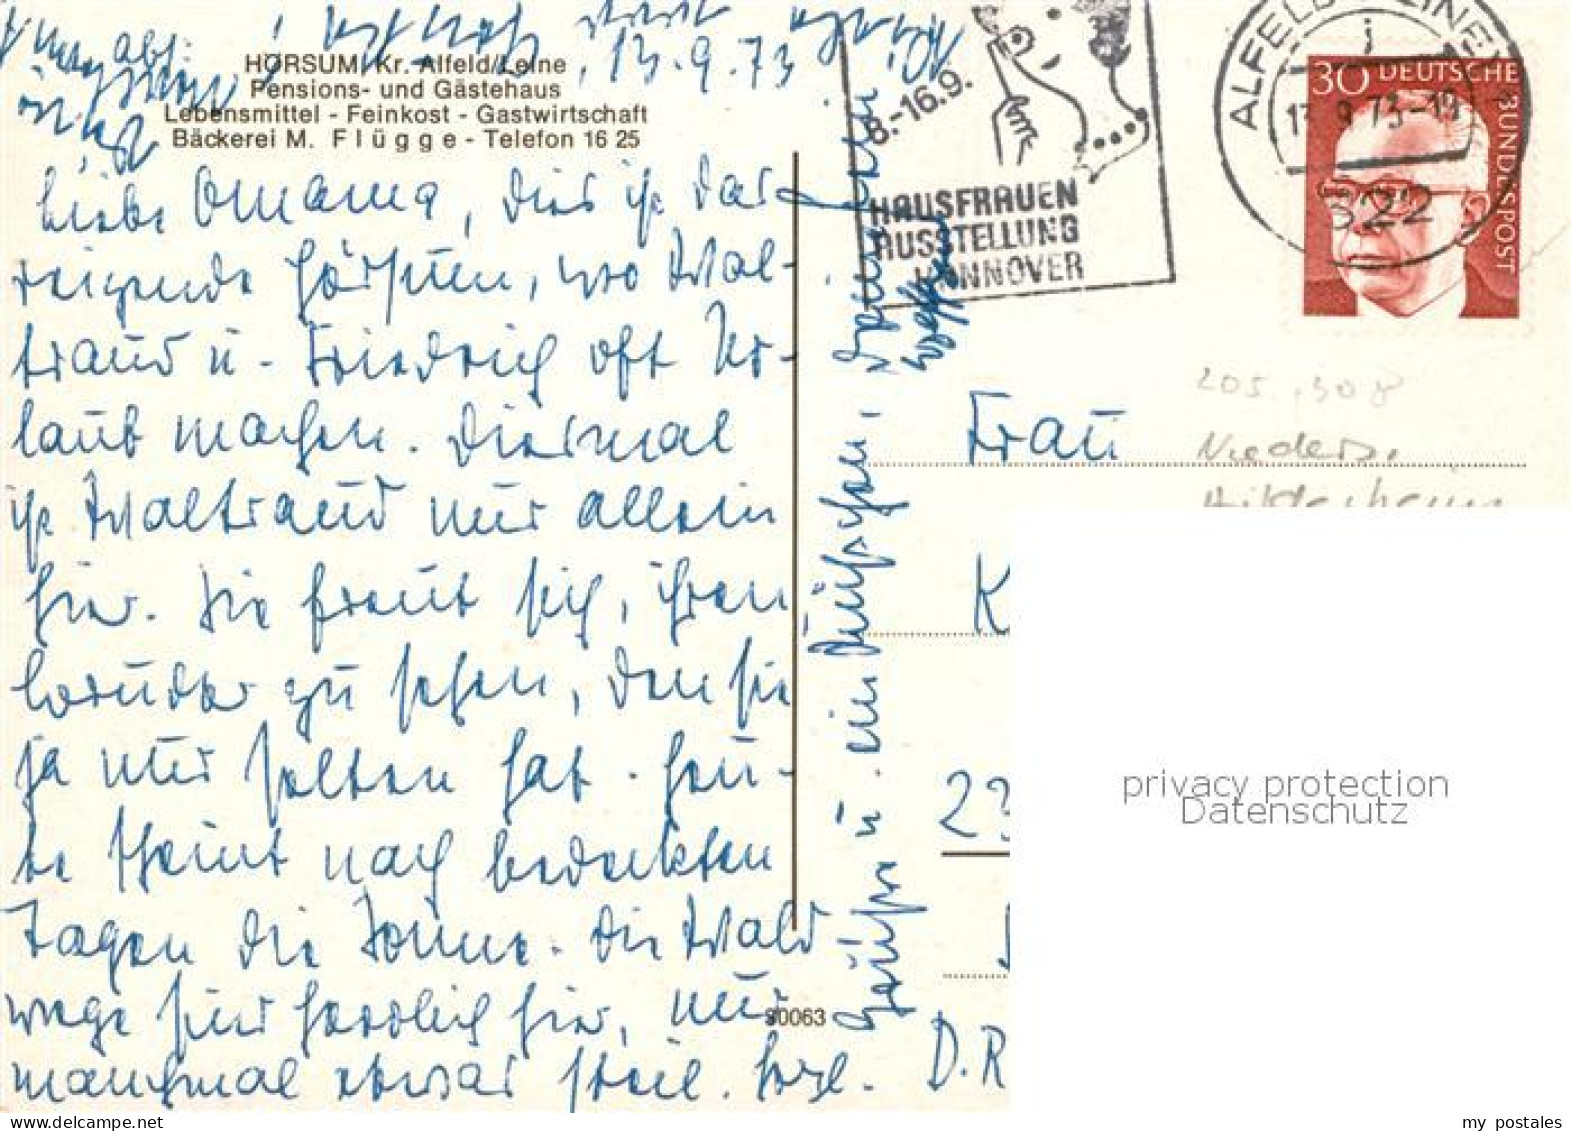 13.9.73
HÖRSUM, Kr. Alfeld/Leine
Pensions- und Gästehaus
Lebensmittel - Feinkost - Gastwirtschaft
Bäckerei M. Flügge - Telefon 16 25
Liebe Omama, dies ist das
reizende Hörsum, wo Wal-
traud u. Friedrich oft Ur-
laub machen. Diesmal
ist Waltraud nur allein
hier. Sie freut sich, ihren
Bruder zu sehen, den sie
ja nur selten hat. Heu-
te scheint nach bedeckten
Tagen die Sonne. Die Wald
wege sind herrlich hier, nur
manchmal etwas steil. Herzl.
Grüße u. ein Küßchen,
30063
8.-16.9.
HAUSFRAUEN
AUSSTELLUNG
HANNOVER
ALFELD (LEINE)
j
13.9.73-19
322
30 DEUTSCHE BUNDESPOST
205
Nieders.
Hildesheim
Frau
K
2
D.R
privacy protection
Datenschutz
my_postales